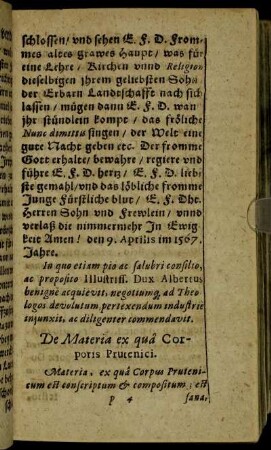 schlossen/ vnd sehen E. F. D. From-
mes altes grawes Haupt/ was für
eine Lehre/ Kirchen vnnd Religion
dieselbigen jhrem geliebsten Sohn
der Erbarn Landtschafft nach sich
lassen/ mügen dann E. F. D. wan
jhr stündlein kompt/ das fröliche
Nunc dimittis singen/ der Welt eine
gute Nacht geben etc. Der fromme
Gott erhalte/ bewahre/ regiere vnd
führe E. F. D. hertz/ E. F. D. lieb-
ste gemahl/ vnd das löbliche fromme
Junge Fürstliche blut/ E. F. Dht.
Herren Sohn vnd Frewlein/ vnnd
verlaß die nimmermehr In Ewig
keit Amen! den 9. Aprilis im 1567.
Jahre.
In quo etiam pio ac salubri consilio,
ac proposito Illustriss. Dux Albertus
benignè acquievit, negotiumq, ad Theo-
logos devolutum pertexendum industriè
injunxit, ac diligenter commendavit.
De Materia ex quâ Cor-
poris Prutenici.
Materia, ex quâ Corpus Pruteni-
cum est conscriptum & compositum; est
P 4 sana,